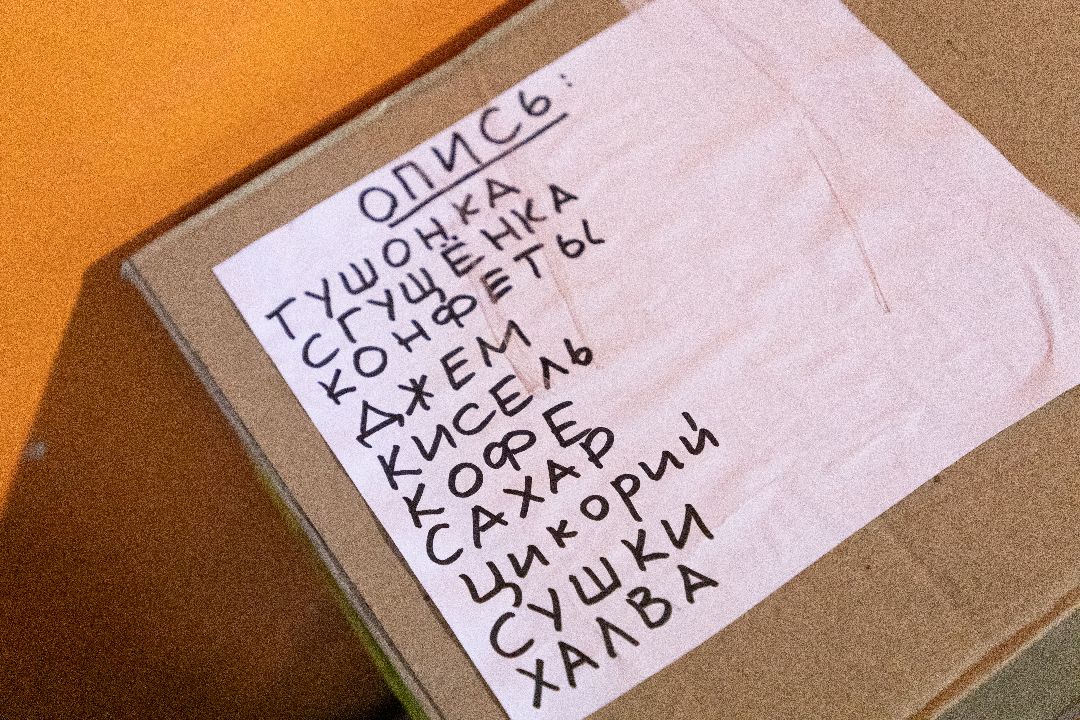 ОПИСЬ:
ТУШОНКА
СГУЩЁНКА
КОНФЕТЫ
ДЖЕМ
КИСЕЛЬ
КОФЕ
САХАР
ЦИКОРИЙ
СУШКИ
ХАЛВА